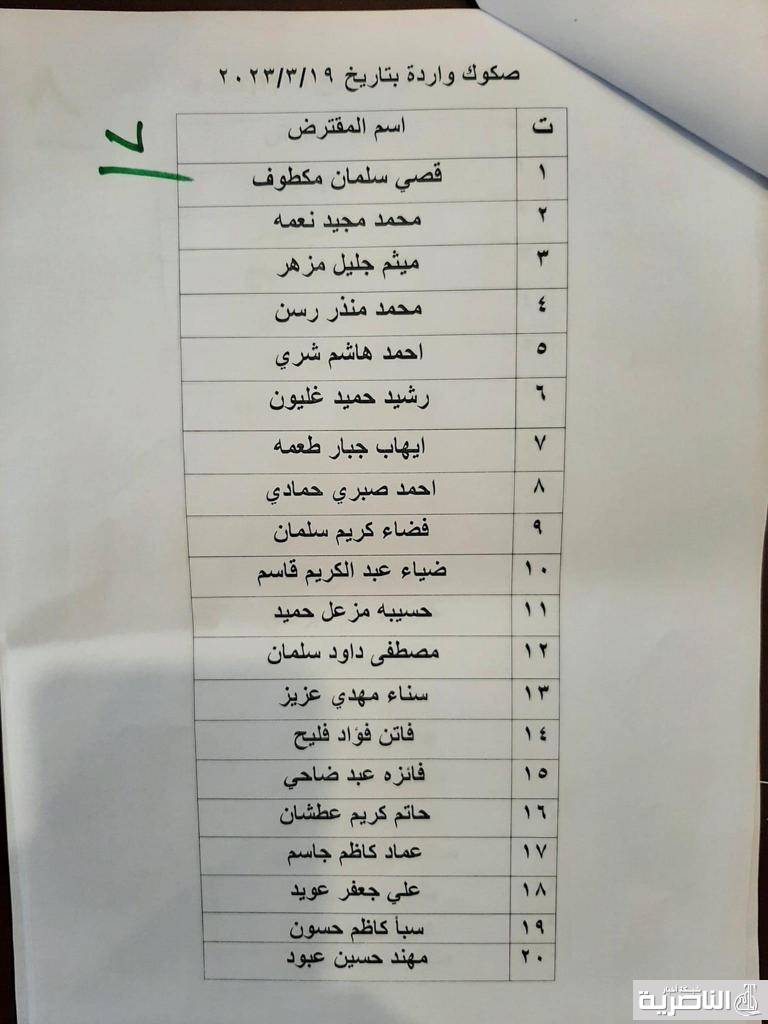 صكوك واردة بتاريخ ٢٠٢٣/٣/١٩
ت اسم المقترض
١ قصي سلمان مكطوف
٢ محمد مجيد نعمه
٣ ميثم جليل مزهر
٤ محمد منذر رسن
٥ احمد هاشم شري
٦ رشيد حميد غليون
٧ ايهاب جبار طعمه
٨ احمد صبري حمادي
٩ فضاء كريم سلمان
١٠ ضياء عبد الكريم قاسم
١١ حسيبه مزعل حميد
١٢ مصطفى داود سلمان
١٣ سناء مهدي عزيز
١٤ فاتن فؤاد فليح
١٥ فائزه عبد ضاحي
١٦ حاتم كريم عطشان
١٧ عماد كاظم جاسم
١٨ علي جعفر عويد
١٩ سبأ كاظم حسون
٢٠ مهند حسين عبود
شبكة أخبار
الناصرية